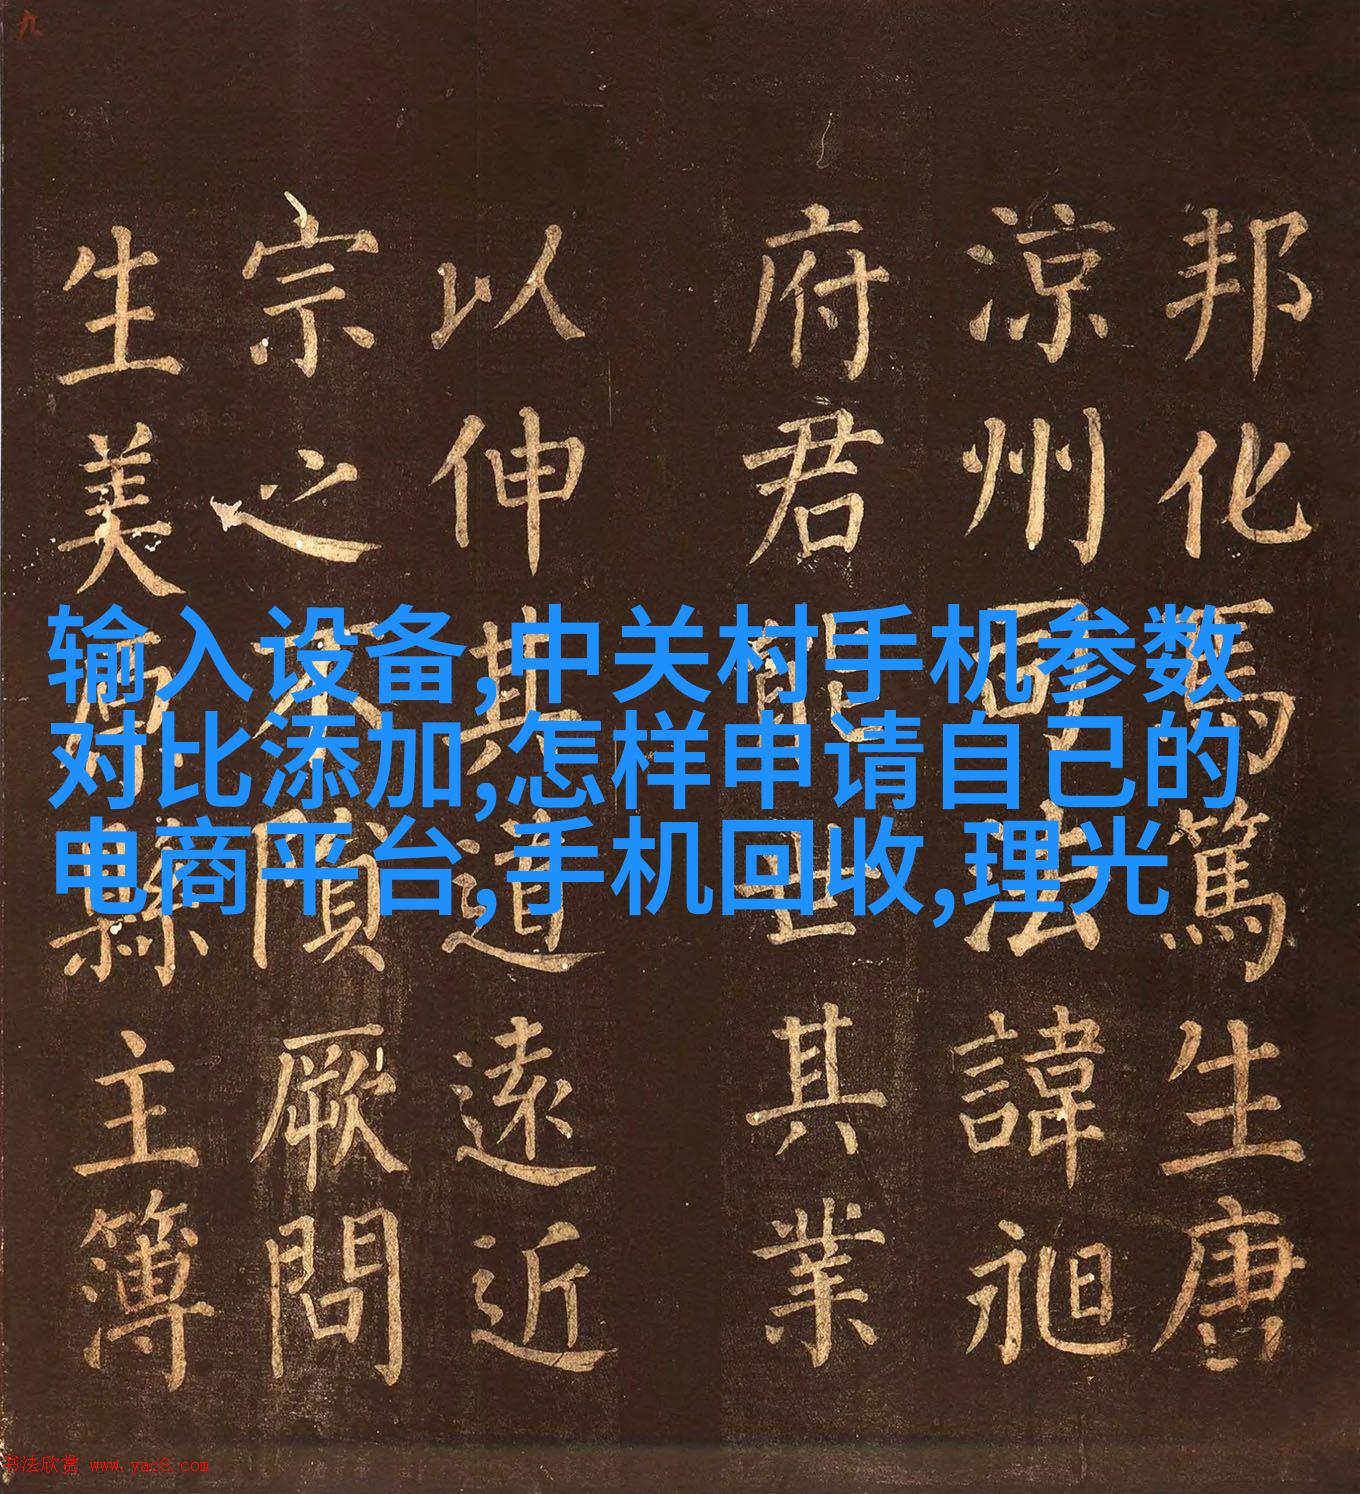 九
邦化馬篤生唐
涼州司法諱昶
府君能世其業
以伸其道遠近
宗之不隕厥問
生美原縣主簿
输入设备,中关村手机参数
对比添加,怎样申请自己的
电商平台,手机回收,理光
书法欣赏 www.yac8.com